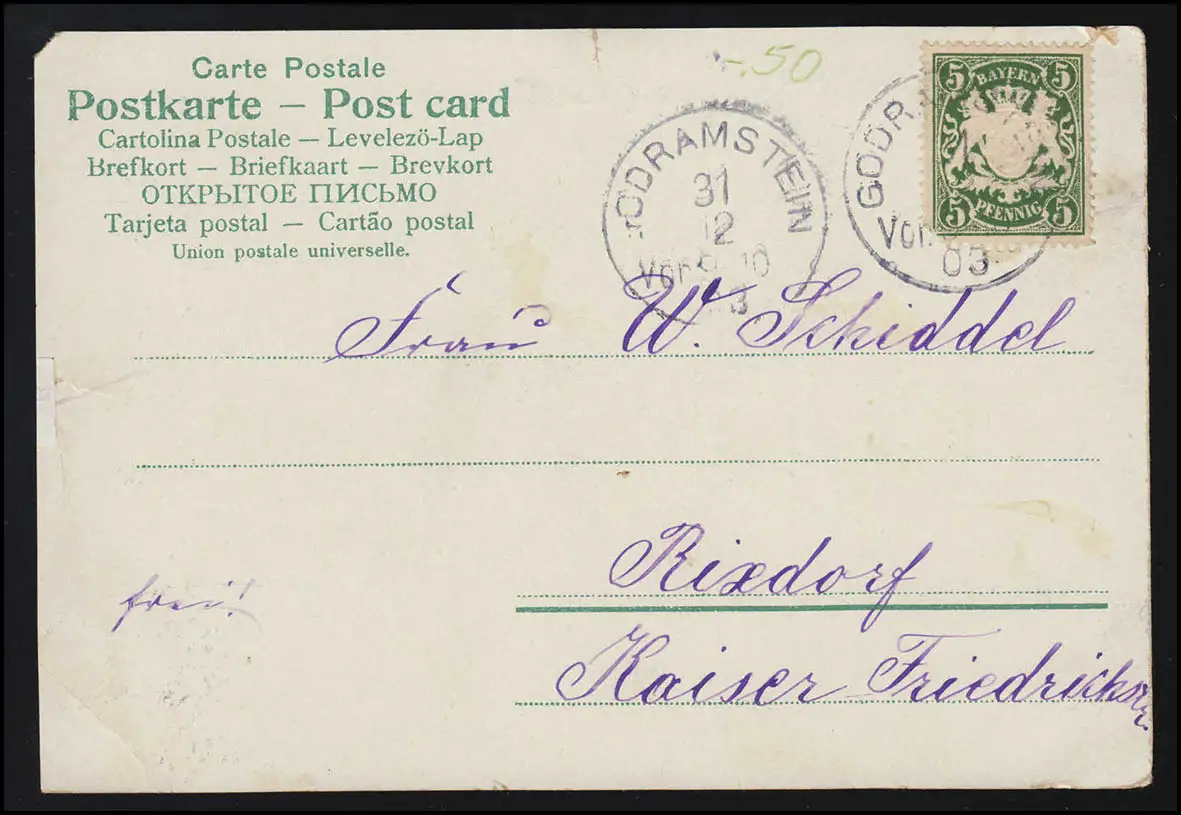 Carte Postale
Postkarte — Post card
Cartolina Postale — Levelező-Lap
Brefkort — Briefkaart — Brevkort
ОТКРЫТОЕ ПИСЬМО
Tarjeta postal — Cartão postal
Union postale universelle.
-.50
GODRAMSTEIN
31
12
Vor
10
3
GODR
Vor
03
5 BAYERN 5
5 PFENNIG 5
Frau W. Schiddel
Rixdorf
frei!
Kaiser Friedrichstr.